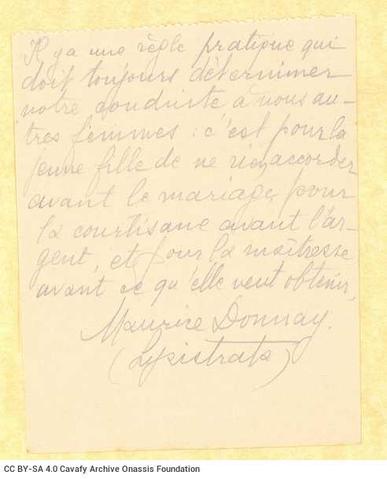 Il y a une règle pratique qui
doit toujours déterminer
notre conduite, à nous au-
tres femmes : c'est pour la
jeune fille de ne rien accorder
avant le mariage, pour
la courtisane avant l'ar-
gent, et pour la maîtresse
avant ce qu'elle veut obtenir.
Maurice Donnay.
(Lysistrata)
CC BY-SA 4.0 Cavafy Archive Onassis Foundation